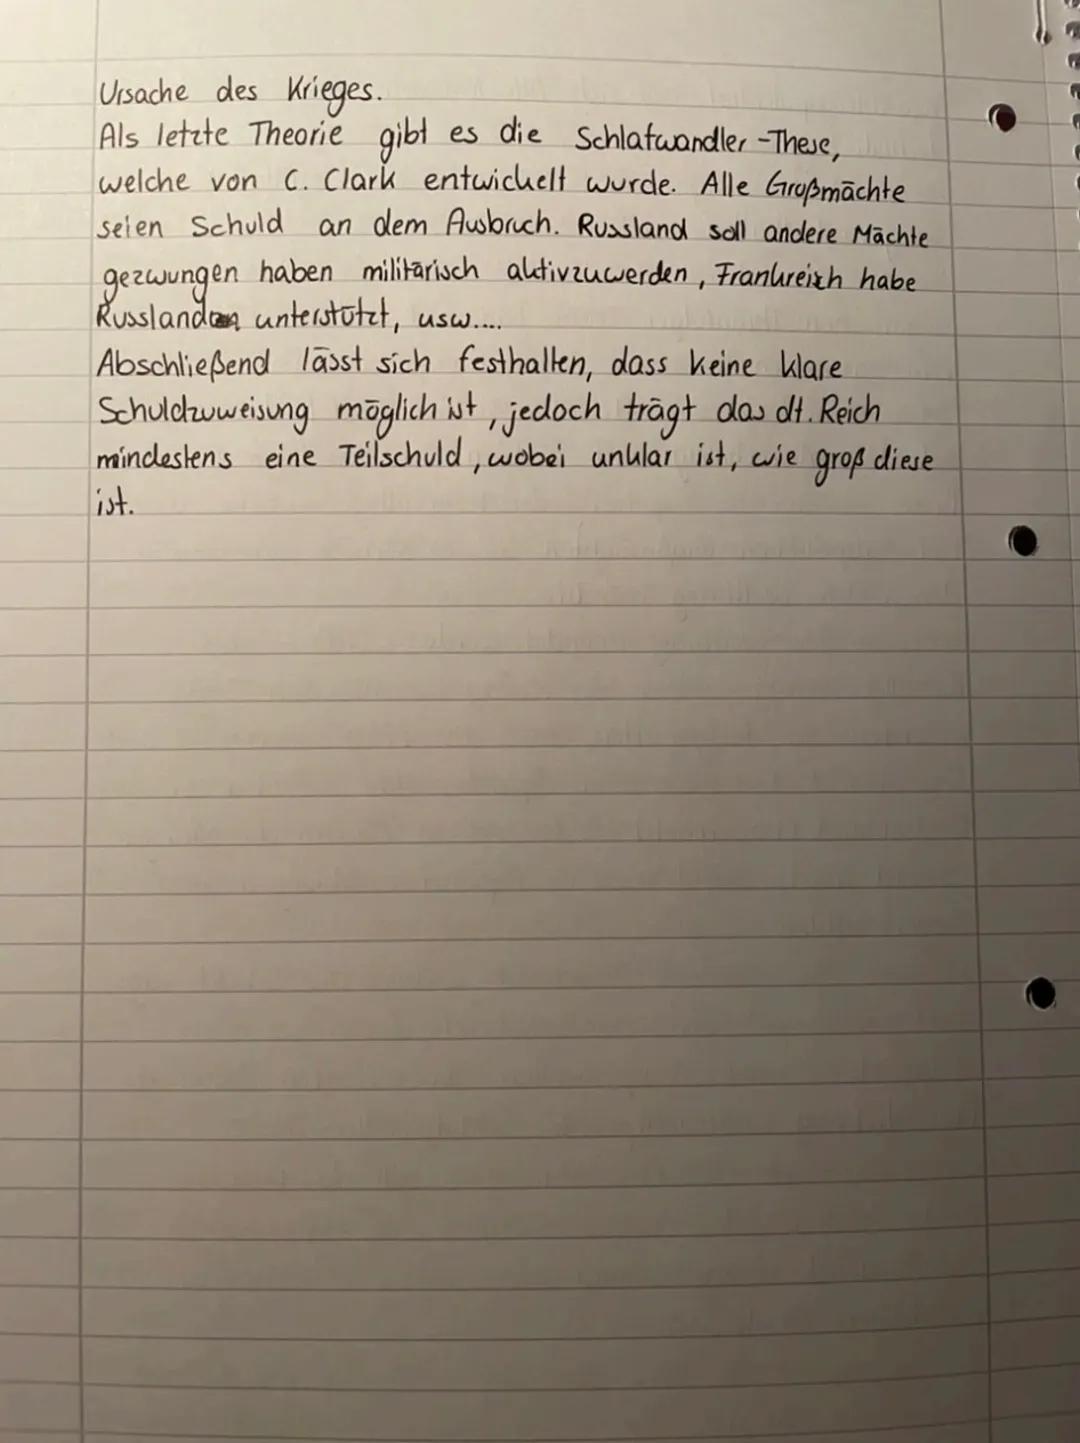 Ursache des Krieges.
Als letzte Theorie gibt es die Schlafwandler-These,
welche von C. Clark entwickelt wurde. Alle Großmächte
seien Schuld an dem Ausbruch. Russland soll andere Mächte
gezwungen haben militärisch aktivzuwerden, Frankreich habe
Russland unterstützt, usw....
Abschließend lässt sich festhalten, dass keine klare
Schuldzuweisung möglich ist, jedoch trägt das dt. Reich
mindestens eine Teilschuld, wobei unklar ist, wie groß diese
ist.